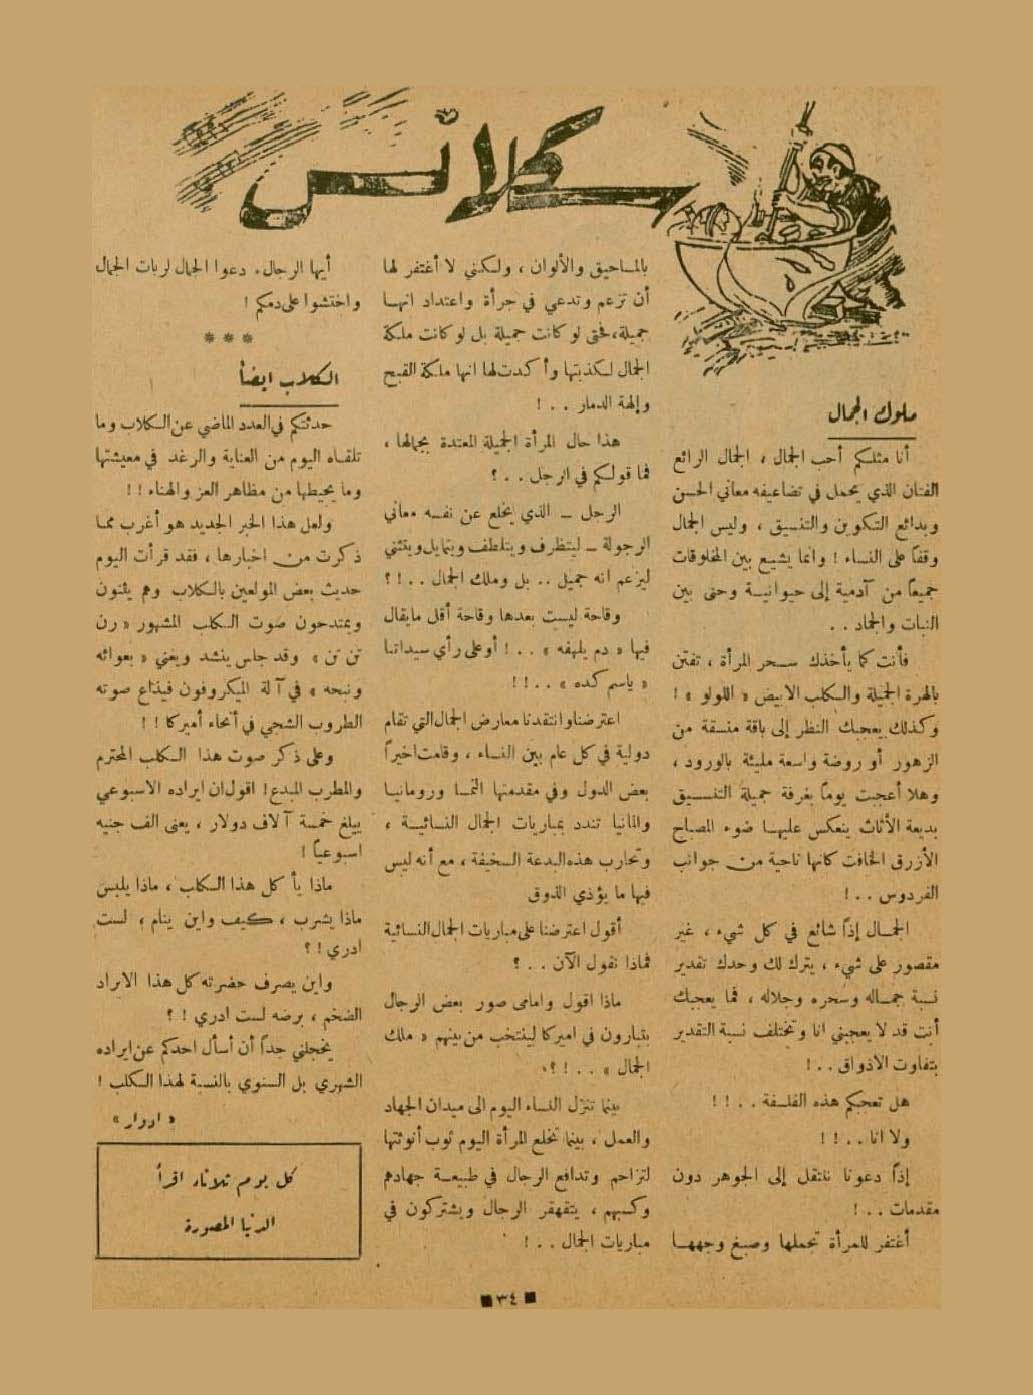 سكلانس
ملوك الجمال
أنا مثلكم أحب الجمال ، الجمال الرائع
الفتان الذي يحمل في تضاعيفه معاني الحسن
وبدائع التكوين والتنسيق ، وليس الجمال
وقفاً على النساء ! وانما يشيع بين المخلوقات
جميعاً من آدمية إلى حيوانية وحتى بين
النبات والجماد . .
فأنت كما يأخذك سحر المرأة ، تفتن
بالهرة الجميلة والكلب الابيض « اللولو » !
وكذلك يعجبك النظر إلى باقة منسقة من
الزهور أو روضة واسعة مليئة بالورود ،
وهلا أعجبت يوماً بغرفة جميلة التنسيق
بديعة الأثاث ينعكس عليها ضوء المصباح
الأزرق الخافت كانها ناحية من جوانب
الفردوس . . !
الجمال إذاً شائع في كل شيء ، غير
مقصور على شيء ، يترك لك وحدك تقدير
نسبة جماله وسحره وجلاله ، فما يعجبك
أنت قد لا يعجبني انا وتختلف نسبة التقدير
بتفاوت الاذواق . . !
هل تعجبكم هذه الفلسفة . . ! !
ولا انا . . ! !
إذاً دعونا ننتقل إلى الجوهر دون
مقدمات . . !
أغتفر للمرأة تجملها وصبغ وجهها
بالمساحيق والألوان ، ولكني لا أغتفر لها
أن تزعم وتدعي في جرأة واعتداد انها
جميلة، فحتى لو كانت جميلة بل لو كانت ملكة
الجمال لكذبتها وأكدت لها انها ملكة القبح
وإلهة الدمار . . !
هذا حال المرأة الجميلة المعتدة بجمالها ،
فما قولكم في الرجل . . ؟
الرجل ــ الذي يخلع عن نفسه معاني
الرجولة ــ ليتظرف ويتلطف ويتمايل ويتثنى
ليزعم انه جميل .. بل وملك الجمال . . ! ؟
وقاحة ليست بعدها وقاحة أقل مايقال
فيها « دم يلهفه » . . ! أو على رأي سيداتنا
« ياسم كده » . . ! !
اعترضنا وانتقدنا معارض الجمال التي تقام
دولية في كل عام بين النساء ، وقامت اخيراً
بعض الدول وفي مقدمتها النمسا ورومانيا
والمانيا تندد بمباريات الجمال النسائية ،
وتحارب هذه البدعة السخيفة ، مع أنه ليس
فيها ما يؤذي الذوق
أقول اعترضنا على مباريات الجمال النسائية
فماذا نقول الآن . . ؟
ماذا اقول وامامي صور بعض الرجال
يتبارون في اميركا لينتخب من بينهم « ملك
الجمال » . . ! ؟
بينما تنزل النساء اليوم الى ميدان الجهاد
والعمل ، بينما تخلع المرأة اليوم ثوب أنوثتها
لتزاحم وتدافع الرجال في طبيعة جهادهم
وكسبهم ، يتقهقر الرجال ويشتركون في
مباريات الجمال . . !
أيها الرجال، دعوا الجمال لربات الجمال
واختشوا على دمكم !
* * *
الكلاب ايضاً
حدثتكم في العدد الماضي عن الكلاب وما
تلقاه اليوم من العناية والرغد في معيشتها
وما يحيطها من مظاهر العز والهناء ! !
ولعل هذا الخبر الجديد هو أغرب مما
ذكرت من اخبارها ، فقد قرأت اليوم
حديث بعض المولعين بالكلاب وهم يثنون
ويمتدحون صوت الكلب المشهور « رن
تن تن » وقد جلس ينشد ويغني « بعوائه
ونبحه » في آلة الميكرفون فيذاع صوته
الطروب الشجي في أنحاء أميركا ! !
وعلى ذكر صوت هذا الكلب المحترم
والمطرب المبدع ! اقول ان ايراده الاسبوعي
يبلغ خمسة آلاف دولار ، يعنى الف جنيه
اسبوعياً !
ماذا يأكل هذا الكلب ، ماذا يلبس
ماذا يشرب ، كيف واين ينام ، لست
ادري ! ؟
واين يصرف حضرته كل هذا الايراد
الضخم ، برضه لست ادري ! ؟
يخجلني جداً أن أسأل احدكم عن ايراده
الشهري بل السنوي بالنسبة لهذا الكلب !
« ادوار »
كل يوم ثلاثاء اقرأ
الدنيا المصورة
٣٤